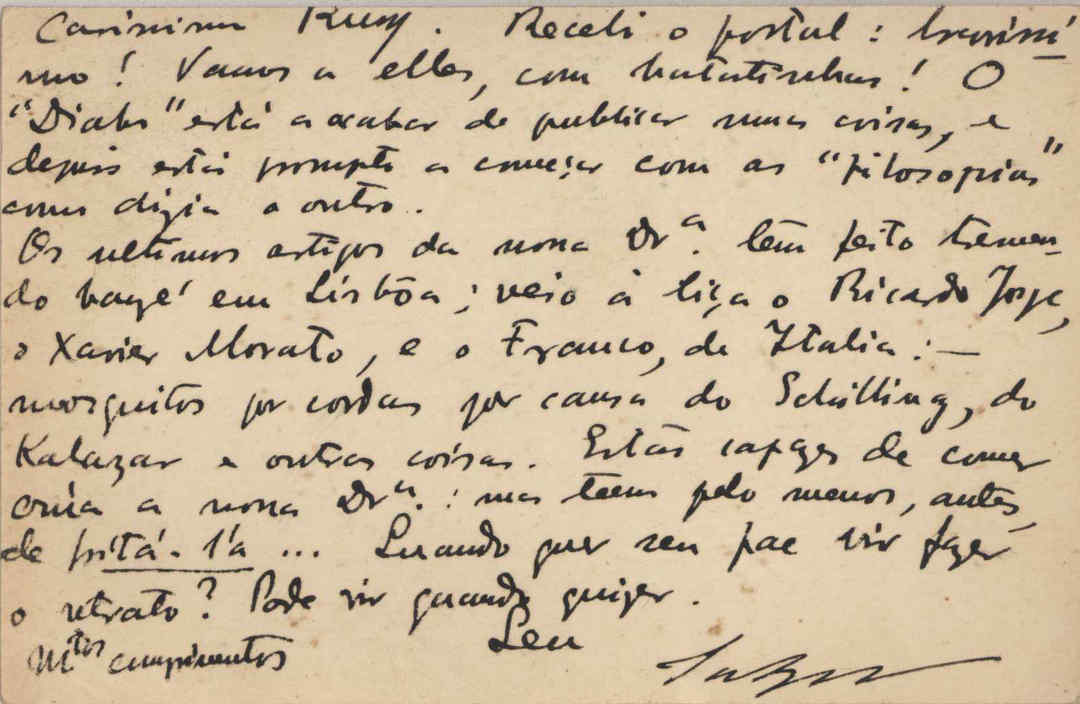 Carissimo Ruy. Recebi o postal: bravissi-
mo! Vamos a elles, com batatinhas! O
"Diabo" está a acabar de publicar umas coisas, e
depois está prompto a começar com as "filosofias"
como dizia o outro.
Os ultimos artigos da nossa Drª. têm feito tremen-
do banzé em Lisbôa; veio á liça o Ricardo Jorge,
o Xavier Morato, e o Franco, de Italia: —
mosquitos por cordas por causa do Schilling, do
Kalazar e outras coisas. Estão capazes de comer
crúa a nossa Drª.: mas teem pelo menos, antes,
de fritá-l'a ... Quando quer seu pae vir fazer
o retrato? Pode vir quando quizer.
Mtos cumprimentos
Seu